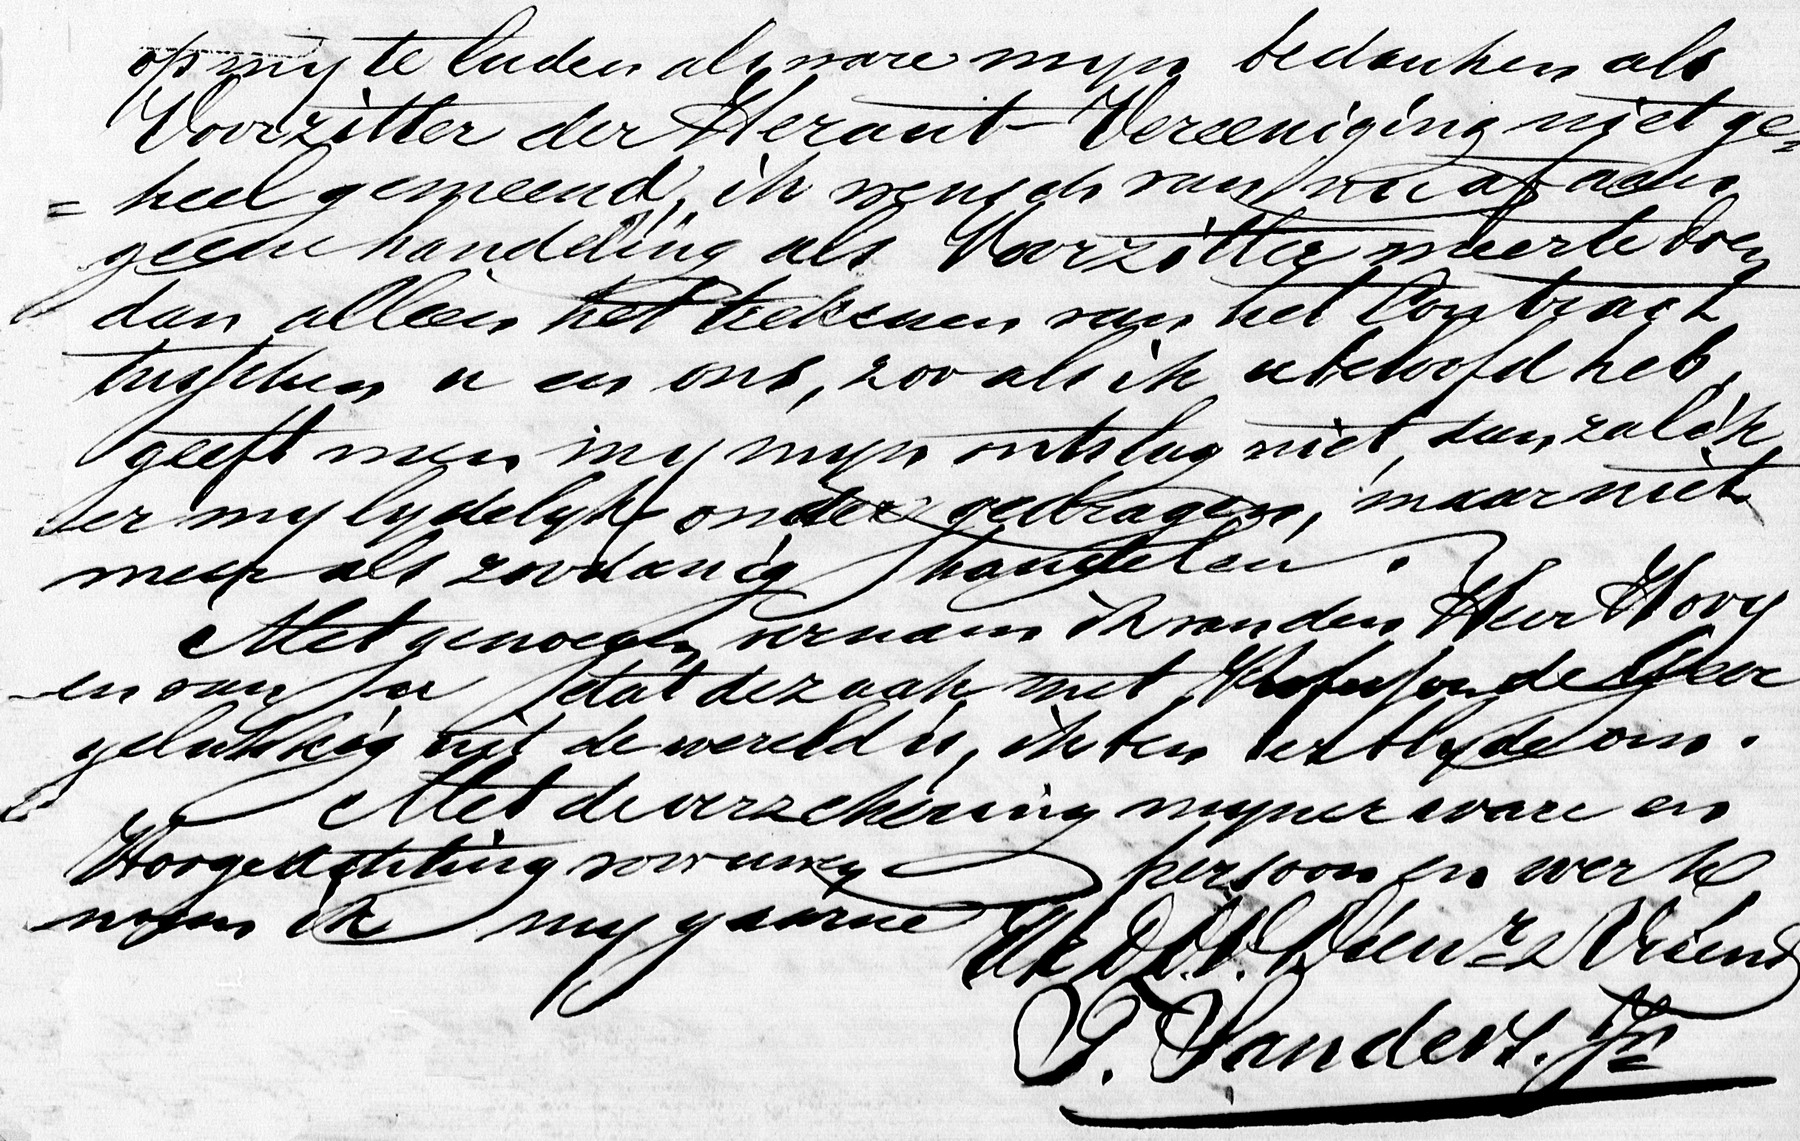 op my te laden als ware myn bedanken als
Voorzitter der Heraut-Vereeniging niet ge=
=heel gemeend, ik wensch van nu af aan
geene handeling als Voorzitter meer te doen
dan alleen het teekenen van het Contract
tusschen u en ons, zoo als ik u beloofd heb,
geeft men my myn ontslag niet, dan zal ik
er my lydelyk onder gedragen, maar niet
meer als zoodanig handelen.
Met genoegen vernam ik van den Heer Hovy
en van u dat de zaak met de Geer
gelukkig uit de wereld is, ik ben er blyde om.
Met de verzekering myner ware en
Hoogachting voor uwen persoon en werk
noem ik my gaarne
Uw Dienr & Vriend
P. Sanders. Jr